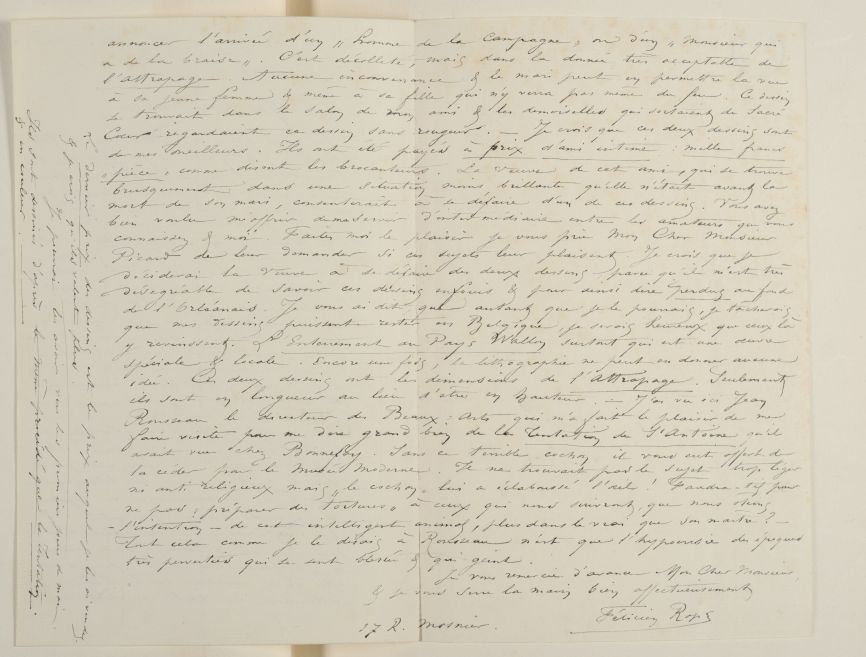 annoncer l'arrivée d'un „ homme de la Campagne „ ou d'un „ Monsieur qui
a de la braise „. C'est décolleté, mais dans la donnée très acceptable de
l'Attrapage. Aucune inconvenance & le mari peut en permettre la vue
à sa jeune femme & même à sa fille qui n'y verra pas même du feu. Ce dessin
se trouvait dans le salon de mon ami & les demoiselles qui sortaient du Sacré
Cœur regardaient ce dessin sans rougir. — Je crois que ces deux dessins sont
de mes meilleurs. Ils ont été payés à prix d'ami intime : mille francs
„ pièce „ comme disent les brocanteurs. La Veuve de cet ami, qui se trouve
brusquement dans une situation moins brillante qu'elle n'était avant la
mort de son mari, consentirait à se défaire d'un de ces dessins. Vous avez
bien voulu m'offrir de me servir d'intermédiaire entre les amateurs que vous
connaissez & moi. Faites moi le plaisir je vous prie Mon Cher Monsieur
Picard de leur demander si ces sujets leur plaisent. Je crois que je
déciderai la Veuve à se défaire des deux dessins, parce qu'il m'est très
désagréable de savoir ces dessins enfouis & pour ainsi dire perdus au fond
de l'Orléanais. Je vous ai dit que autant que je le pourrais, je tâcherais
que mes dessins puissent rester en Belgique, je serais heureux que ceux là
y revinssent. L'Enterrement au Pays Wallon surtout qui est une œuvre
spéciale & locale. Encore une fois, la lithographie ne peut en donner aucune
idée. Ces deux dessins ont les dimensions de l'Attrapage. Seulement
ils sont en longueur au lieu d'être en hauteur. — J'ai vu ici Jean
Rousseau le directeur des Beaux-Arts qui m'a fait le plaisir de me
faire visite pour me dire grand bien de la Tentation de St Antoine qu'il
avait vue chez Bonnefoy. Sans ce terrible cochon, il vous eut offert de
la céder pour le Musée Moderne. Il ne trouvait pas le sujet trop léger
ni anti religieux mais „ le cochon „ lui a éclaboussé l'œil ! Faudra-t-il pour
ne pas „ préparer des tortures „ à ceux qui nous suivront, que nous
– l'intention – de cet intelligent animal, plus dans le vrai que son maître ? –
Tout cela comme je le disais à Rousseau n'est que l'hypocrisie des époques
très perverties qui se sent blessée & qui geint.
Je vous remercie d'avance Mon Cher Monsieur
& je vous serre la main bien affectueusement
Félicien Rops
17 R. Mosnier.
Le dernier prix des dessins est le prix auquel je les ai vendus
& je crois qu'ils valent plus.
Je pourrai les avoir vers les premiers jours de mai.
Ils sont dessinés d'après le même procédé que la Tentation.
& en couleur.